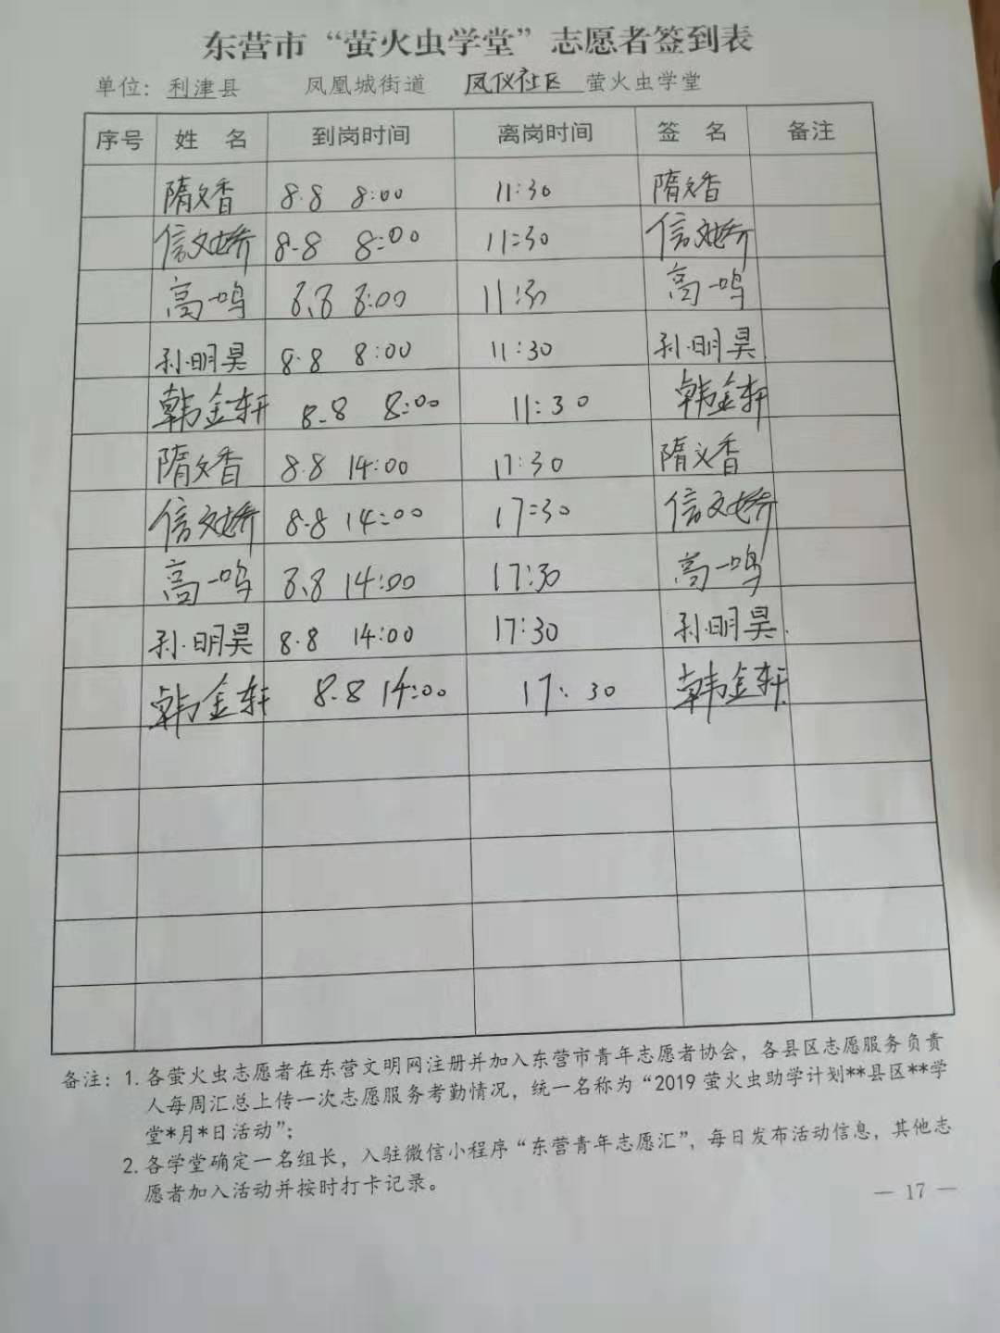 东营市“萤火虫学堂”志愿者签到表
单位：利津县 凤凰城街道 凤仪社区 萤火虫学堂
序号 姓名 到岗时间 离岗时间 签名 备注
隋文香 8.8 8:00 11:30 隋文香
信文娇 8-8 8:00 11:30 信文娇
高一鸣 8.8 8:00 11:30 高一鸣
孙明昊 8.8 8:00 11:30 孙明昊
韩金轩 8-8 8:00 11:30 韩金轩
隋文香 8.8 14:00 17:30 隋文香
信文娇 8-8 14:00 17:30 信文娇
高一鸣 8.8 14:00 17:30 高一鸣
孙明昊 8.8 14:00 17:30 孙明昊.
韩金轩 8.8 14:00 17:30 韩金轩
备注：1. 各萤火虫志愿者在东营文明网注册并加入东营市青年志愿者协会，各县区志愿服务负责
人每周汇总上传一次志愿服务考勤情况，统一名称为“2019 萤火虫助学计划**县区**学
堂*月*日活动”；
2. 各学堂确定一名组长，入驻微信小程序“东营青年志愿汇”，每日发布活动信息，其他志
愿者加入活动并按时打卡记录。
— 17 —